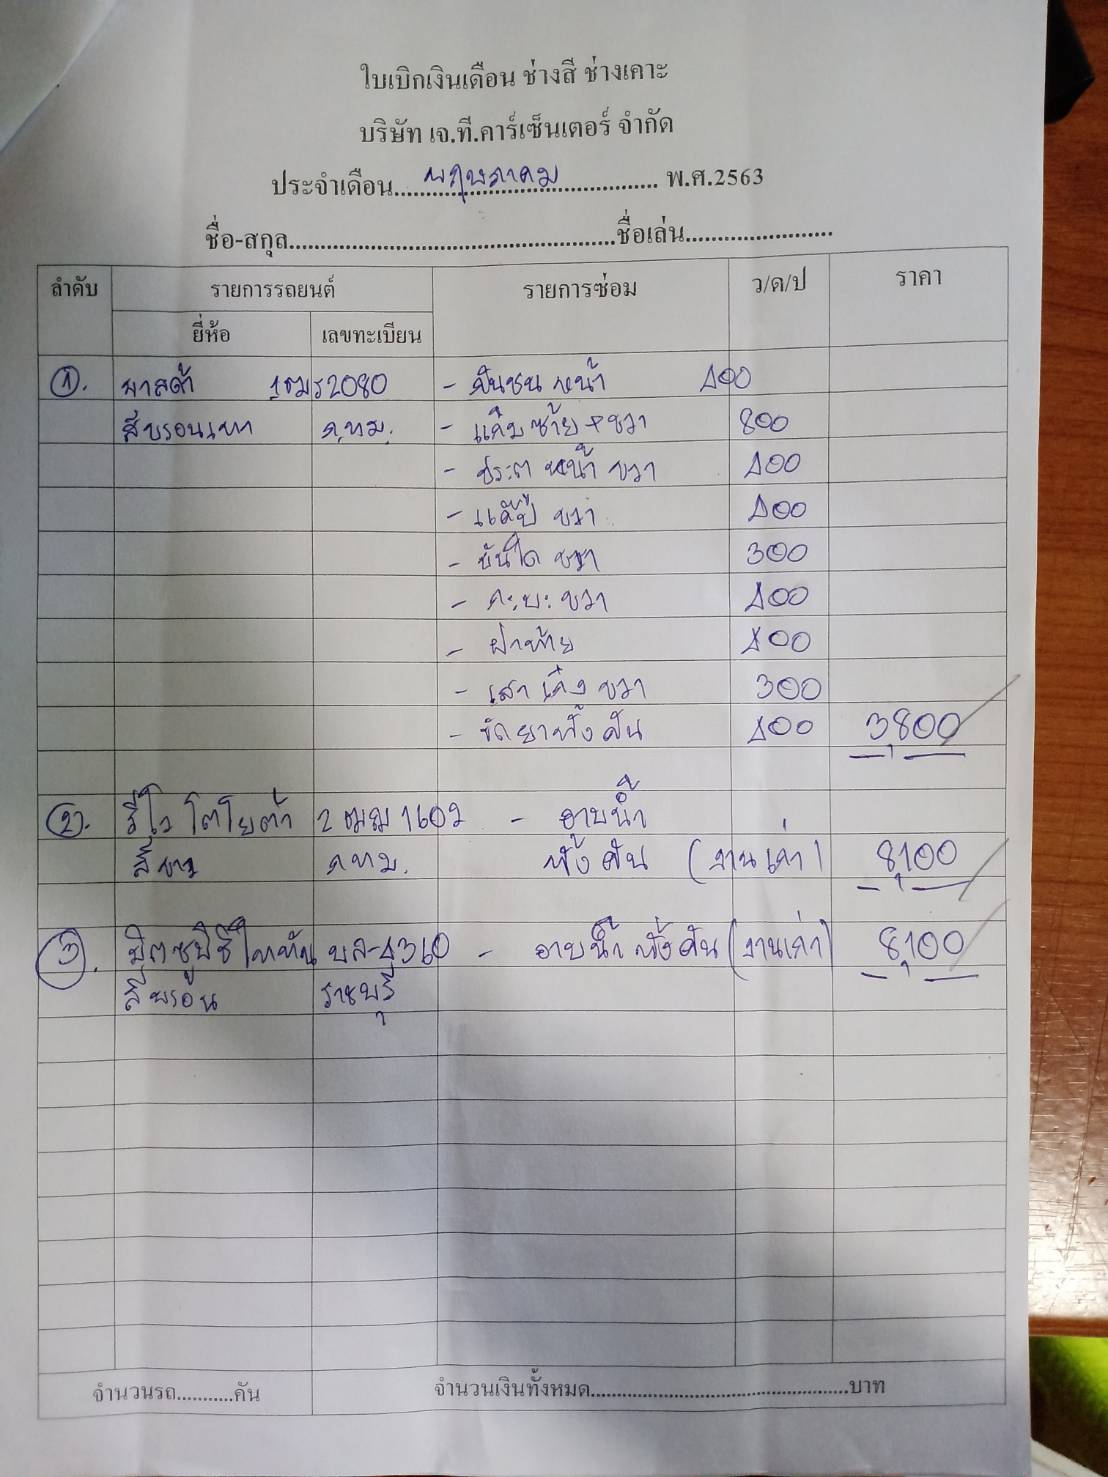 ใบเบิกเงินเดือน ช่างสี ช่างเคาะ
บริษัท เจ.ที.คาร์เซ็นเตอร์ จำกัด
ประจำเดือน....พฤษภาคม.... พ.ศ.2563
ชื่อ-สกุล....................ชื่อเล่น....................
ลำดับ รายการรถยนต์ รายการซ่อม ว/ด/ป ราคา
ยี่ห้อ เลขทะเบียน
①. มาสด้า 2080 - กันชน หน้า 400
สีบรอนเทา ก.ท.ม. - แก้มซ้าย+ขวา 800
- ประตู หน้า ขวา 400
- แค๊ป ขวา 400
- บันใด ขวา 300
- กะบะ ขวา 400
- ฝาท้าย 400
- เสาเก๋ง ขวา 300
- ขัดยาทั้งคัน 400 3,800
②. รีโว่ โตโยต้า 2 ฒฒ 1602 - อาบน้ำ
สีขาว ก.ท.ม. ทั้งคัน (งานเก่า) 8,100
③. มิตซูบิชิ ไททัน บล-4360 - อาบน้ำ ทั้งคัน (งานเก่า) 8,100
สีบรอน ราชบุรี
จำนวนรถ...........คัน จำนวนเงินทั้งหมด....................บาท